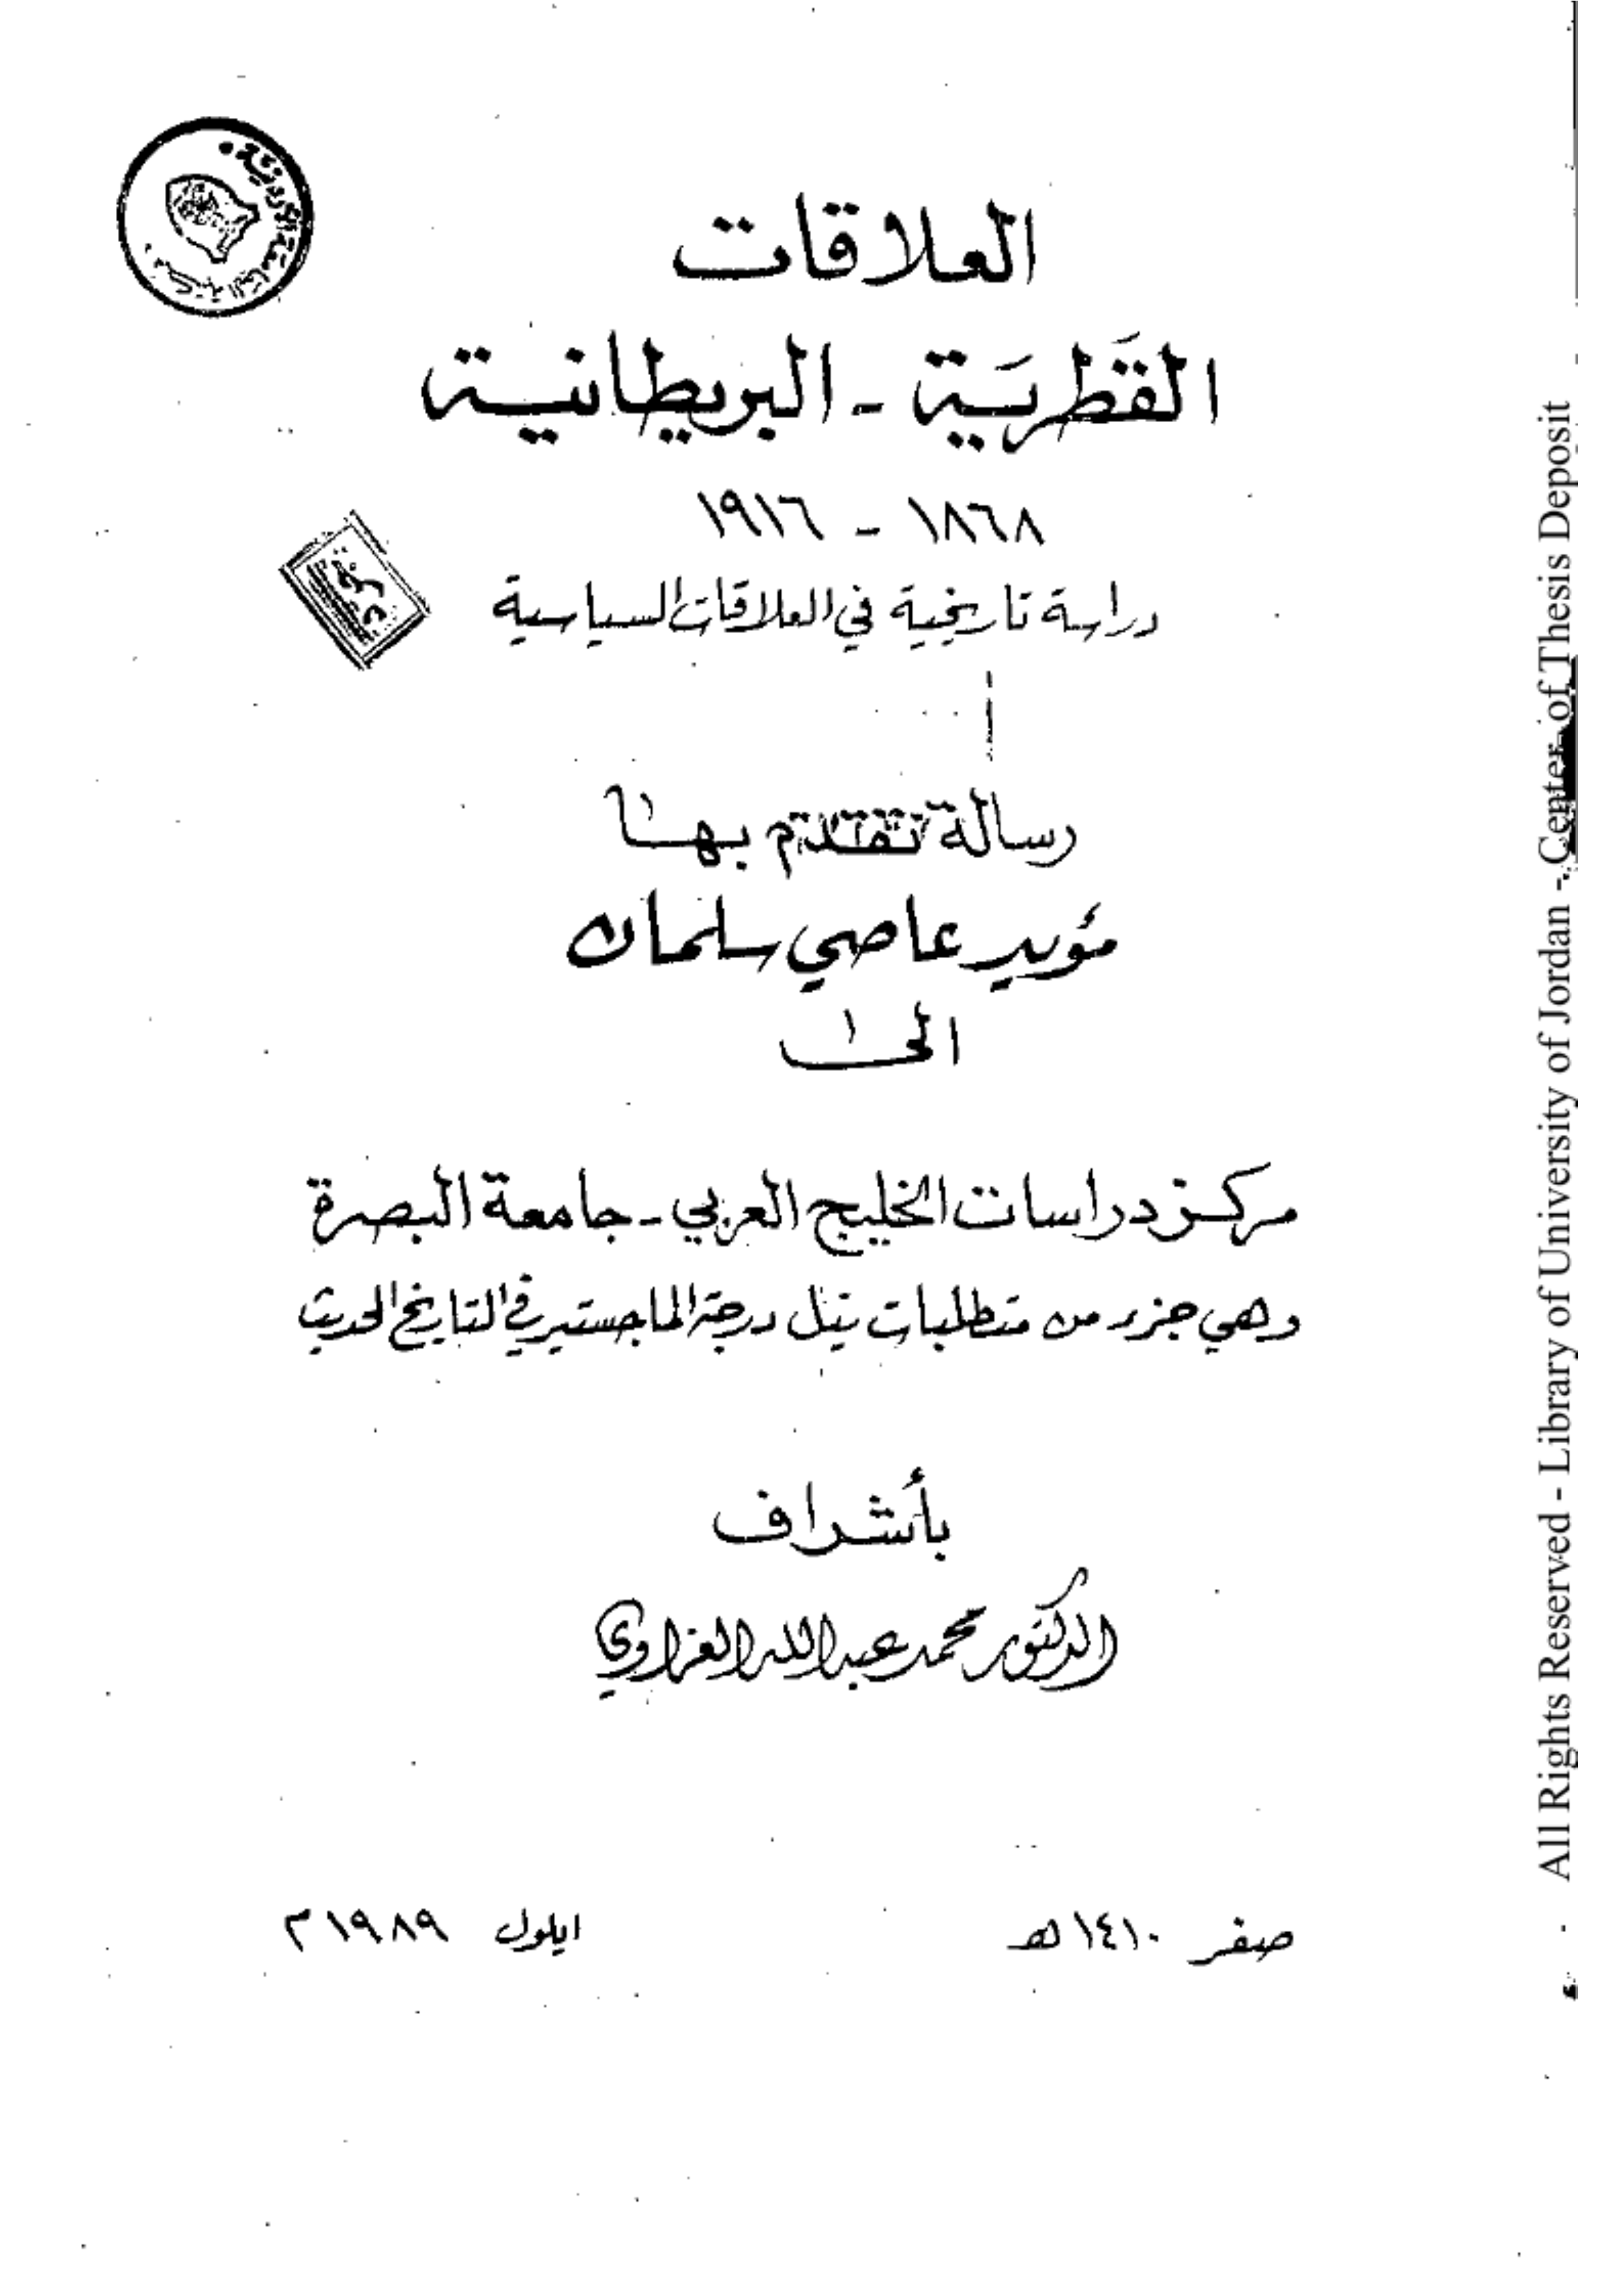 العلاقات
القَطَرِيَّة - البريطانية
١٨٦٨ - ١٩١٦
دراسة تاريخية في العلاقات السياسية
رسالة تقدم بها
مؤيد عاصي سلمان
الى
مركز دراسات الخليج العربي - جامعة البصرة
وهي جزء من متطلبات نيل درجة الماجستير في التاريخ الحديث
بأشراف
الدكتور محمد عبدالله العزاوي
صفر ١٤١٠ هـ
ايلول ١٩٨٩ م
All Rights Reserved - Library of University of Jordan - Center of Thesis Deposit